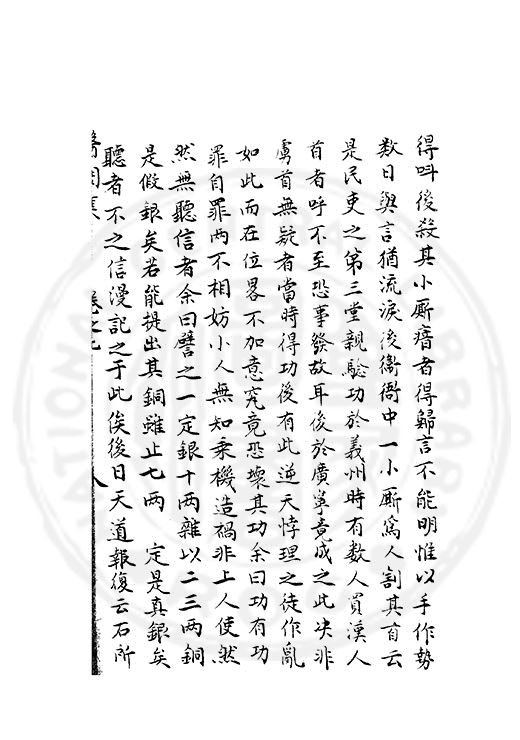 得叫後殺其小厮瘖者得歸言不能明惟以手作勢
数日與言猶流涙後衞衙中一小厮爲人割其首云
是民吏之第三堂親驗功於義州時有数人買漢人
首者呼不至恐事發故耳後於廣寧竟成之此决非
虜首無疑者當時得功後有此逆天悖理之徒作亂
如此而在位畧不加意究竟恐壞其功余曰功有功
罪自罪两不相妨小人無知乗機造禍非上人使然
然無聽信者余曰譬之一定銀十两雜以二三两銅
是假銀矣若能提出其銅雖止七两 定是真銀矣
聽者不之信漫記之于此俟後日天道報復云石所
卷之